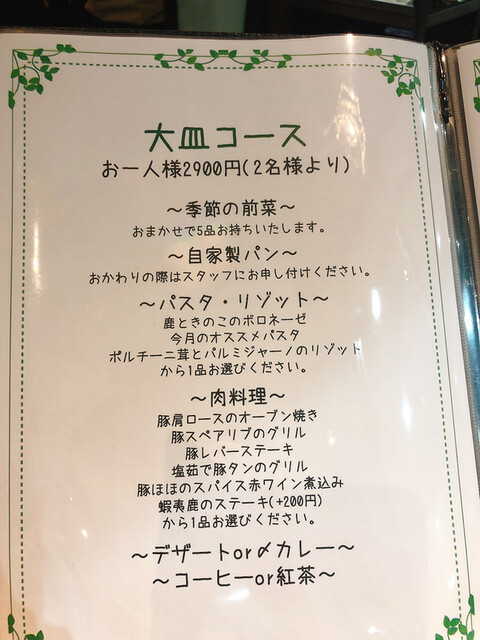 大皿コース
お一人様2900円(2名様より)
～季節の前菜～
おまかせで5品お持ちいたします。
～自家製パン～
おかわりの際はスタッフにお申し付けください。
～パスタ・リゾット～
鹿ときのこのボロネーゼ
今月のオススメパスタ
ポルチーニ茸とパルミジャーノのリゾット
から1品お選びください。
～肉料理～
豚肩ロースのオーブン焼き
豚スペアリブのグリル
豚レバーステーキ
塩茹で豚タンのグリル
豚ほほのスパイス赤ワイン煮込み
蝦夷鹿のステーキ(+200円)
から1品お選びください。
～デザートor〆カレー～
～コーヒーor紅茶～